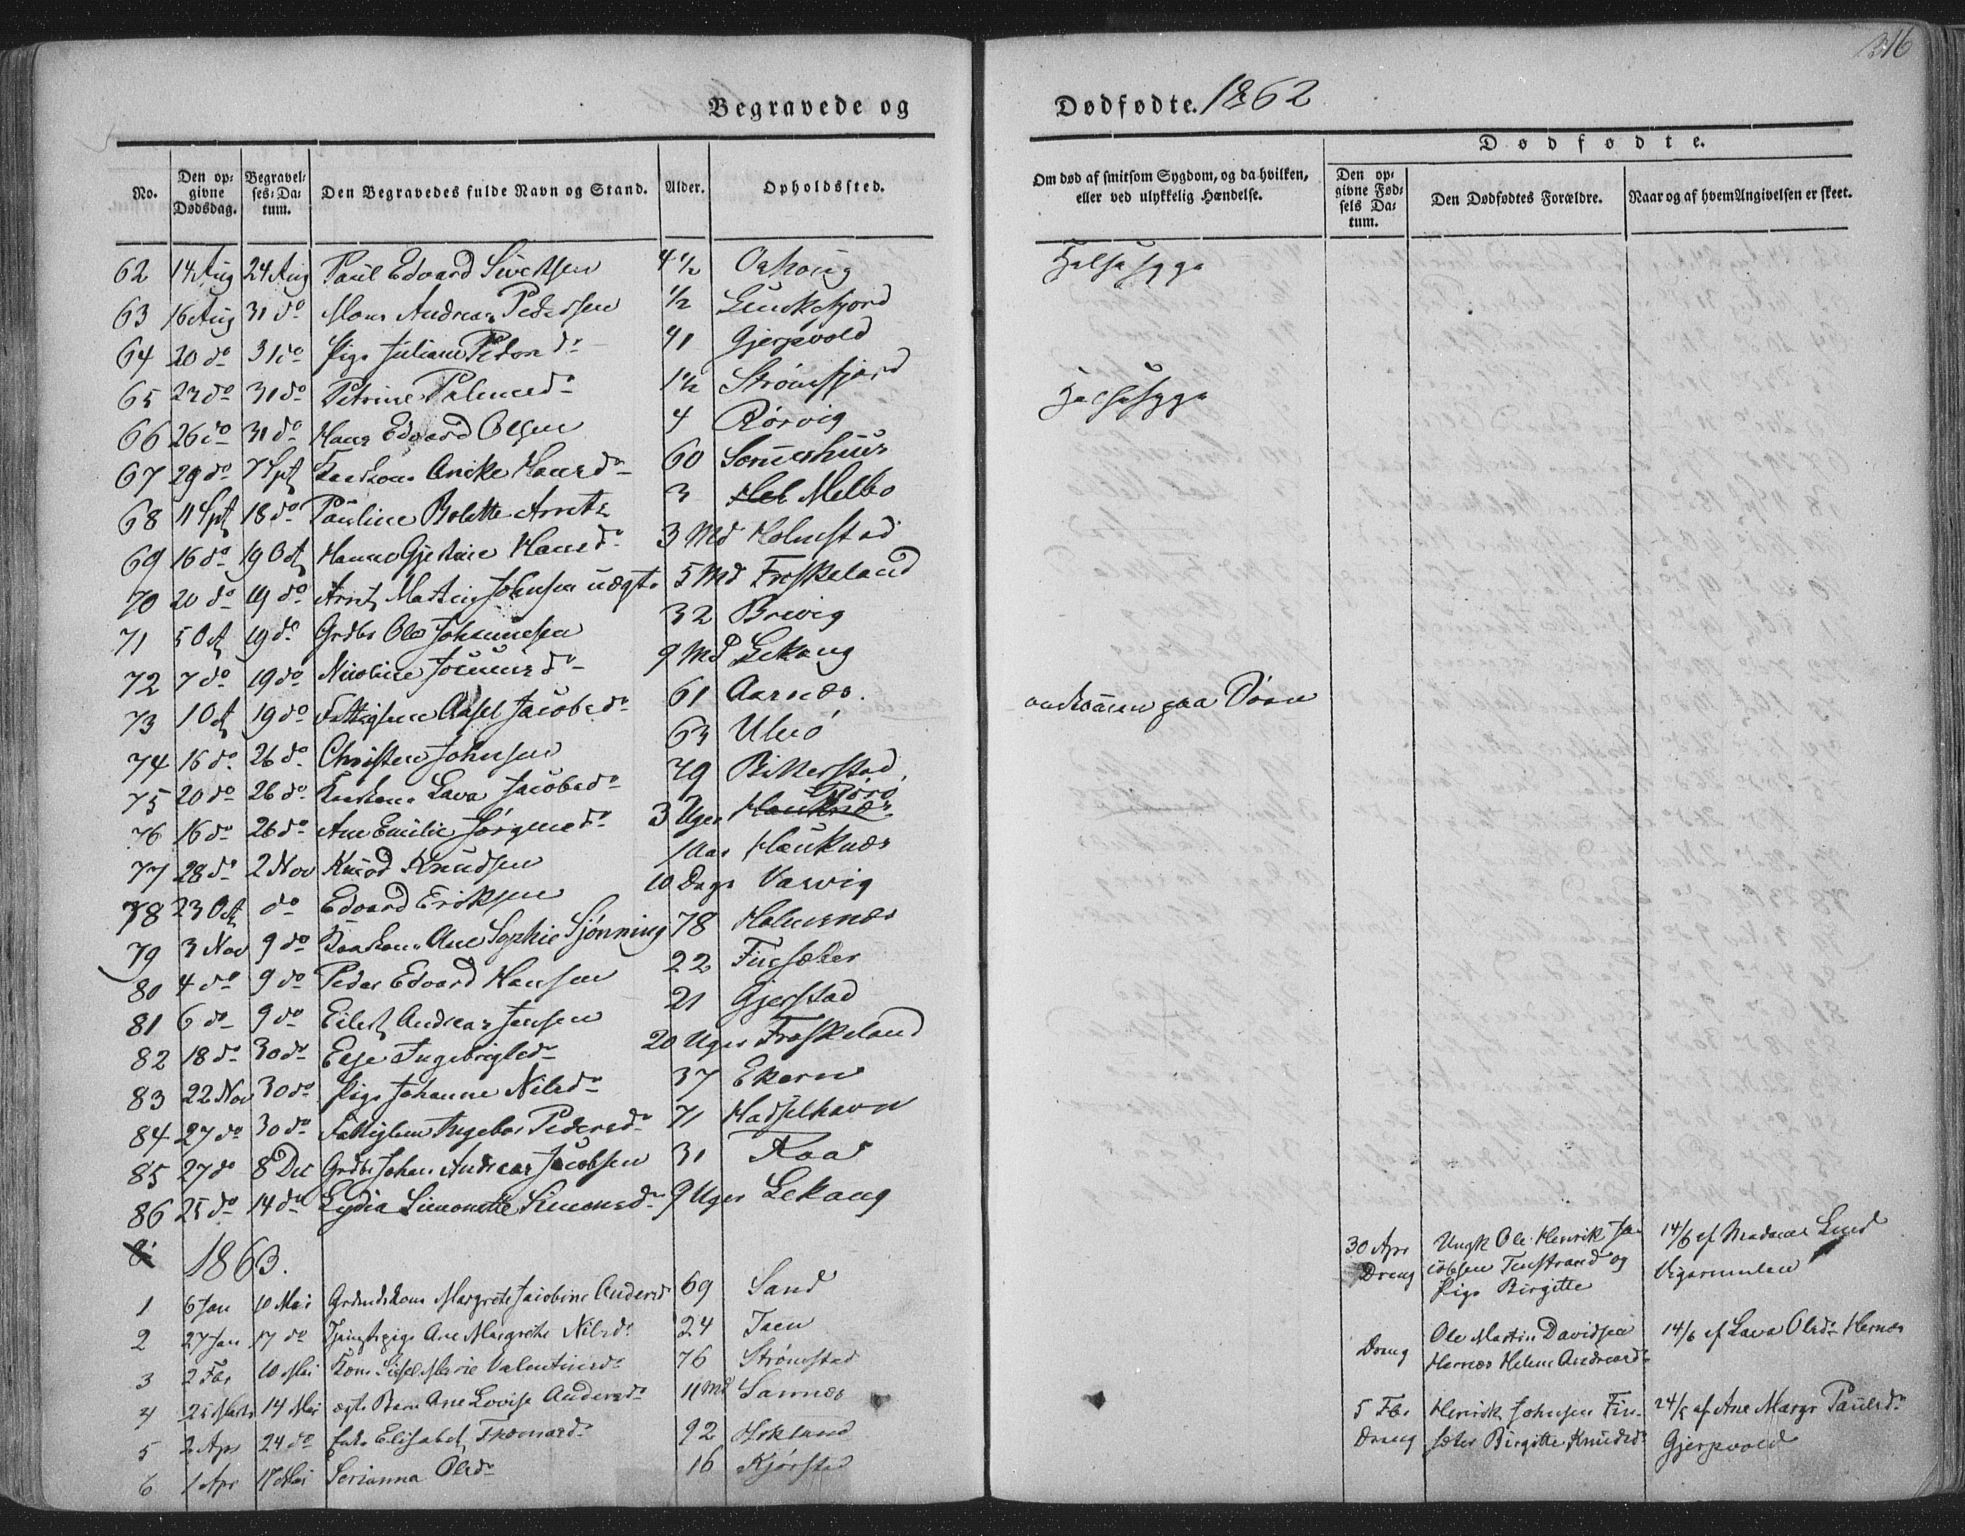 316
Begravede og Dødfødte. 1862
No. Den opgivne Dødsdag. Begravelses-Datum. Den Begravedes fulde Navn og Stand. Alder. Opholdssted. Om død af smitsom Sygdom, og da hvilken, eller ved ulykkelig Hændelse.
Dødfødte.
Den opgivne Fødsels Datum. Den Dødfødtes Forældre. Naar og af hvem Angivelsen er skeet.
62 14 Aug 24 Aug Paul Edvard Sivertsen 4 1/2 Halssyge
63 16 Aug 31 do Mons Andreas Pedersen 1/2
64 20 do 31 do Pige Juliane Peders d. 41 Gjerpvold
65 22 do 31 do Petrine d. 1 1/2 Strømfjord Halssyge
66 26 do 31 do Hans Edvard Olsen 4 Rørvig
67 29 do 7 Spt Kaarkone Anike Hansd. 60 Sørneshuus
68 11 Spt 18 do Pauline Bolette Arnts 3 Melbo
69 16 do 19 Oct Hanna Gjertine Hansd. 3 Md Holmstad
70 20 do 19 do Arnt Martin Johnsen uægte 5 Md Froskeland
71 5 Oct 19 do Grdbr Ole Johannesen 32 Brevig
72 7 do 19 do Nicoline d. 9 Md Lekang
73 1 Oct 19 do Axsel Jacobsd. 61 Aarnæs. omkommen paa Søen
74 16 do 26 do Christen Johnsen 63 Ulvø
75 20 do 26 do Kaarkone Lava Jacobsd. 79 Bitterstad
76 16 do 26 do Ane Emilie Jørgensd. 3 Uger
77 28 do 2 Nov Knud Knudsen 1 Aar Hauknæs
78 23 Oct do Edvard Eriksen 10 Dage Varvig
79 3 Nov 9 do Kaarkone Ane Sophie Sjønning 78 Holmsnæs
80 4 do 9 do Peder Edvard Hansen 22 Finsæter
81 6 do 9 do Eilert Andreas Jensen 21 Gjerstad
82 18 do 30 do Else Ingebrigtsd. 20 Uger Froskeland
83 22 Nov 30 do Pige Johanne Nilsd. 37 Ekorn
84 27 do 30 do Fattiglem Ingebor Pedersd. 71 Hadselhavn
85 27 do 8 Dec Grdbr Johan Andreas Jacobsen 31
86 25 do 14 do Lydia Simonette Simonsd. 9 Uger Lekang
1863.
1 6 Jan 10 Mai Grdmdskone Margrete Jacobine Andersd 69 Sand
2 27 Jan 17 do Tjenstepige Ane Margrete Nilsd. 24 Taen
3 2 Fbr 10 Mai Kone Sissel Marie Valentinsd. 76 Strømstad
4 25 Marts 14 Mai ægte Barn Ane Lovise Andersd. 11 Md Sannæs
5 2 Apr 24 do Enke Elisabet Thomasd. 92 Hokland
6 1 Apr 17 Mai Serianna Olsd. 16 Kjørstad
30 Apr Dreng Ungk Ole Henrik Jacobsen Finstrand og Pige Birgitte 14/6 af Madame Lund Vigarmulen
Dreng Ole Martin Davidsen Hernæs Helene Andreasd. 14/6 af Lava Olsd. Hernæs
5 Fbr Dreng Henrik Johnsen Finsæter Birgitte Knudsd. 24/5 af Ane Margr Paulsd. Gjerpvold